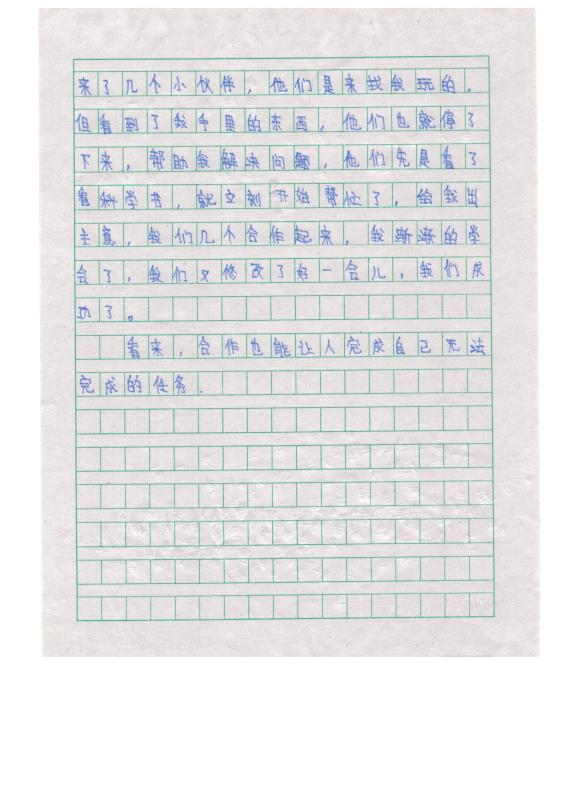 来了几个小伙伴，他们是来找我玩的，
但看到了我手里的东西，他们也就停了
下来，帮助我解决问题，他们先是看了
看科学书，就立刻开始帮忙了，给我出
主意，我们几个合作起来，我渐渐的学
会了，我们又修改了好一会儿，我们成
功了。
看来，合作也能让人完成自己无法
完成的任务．